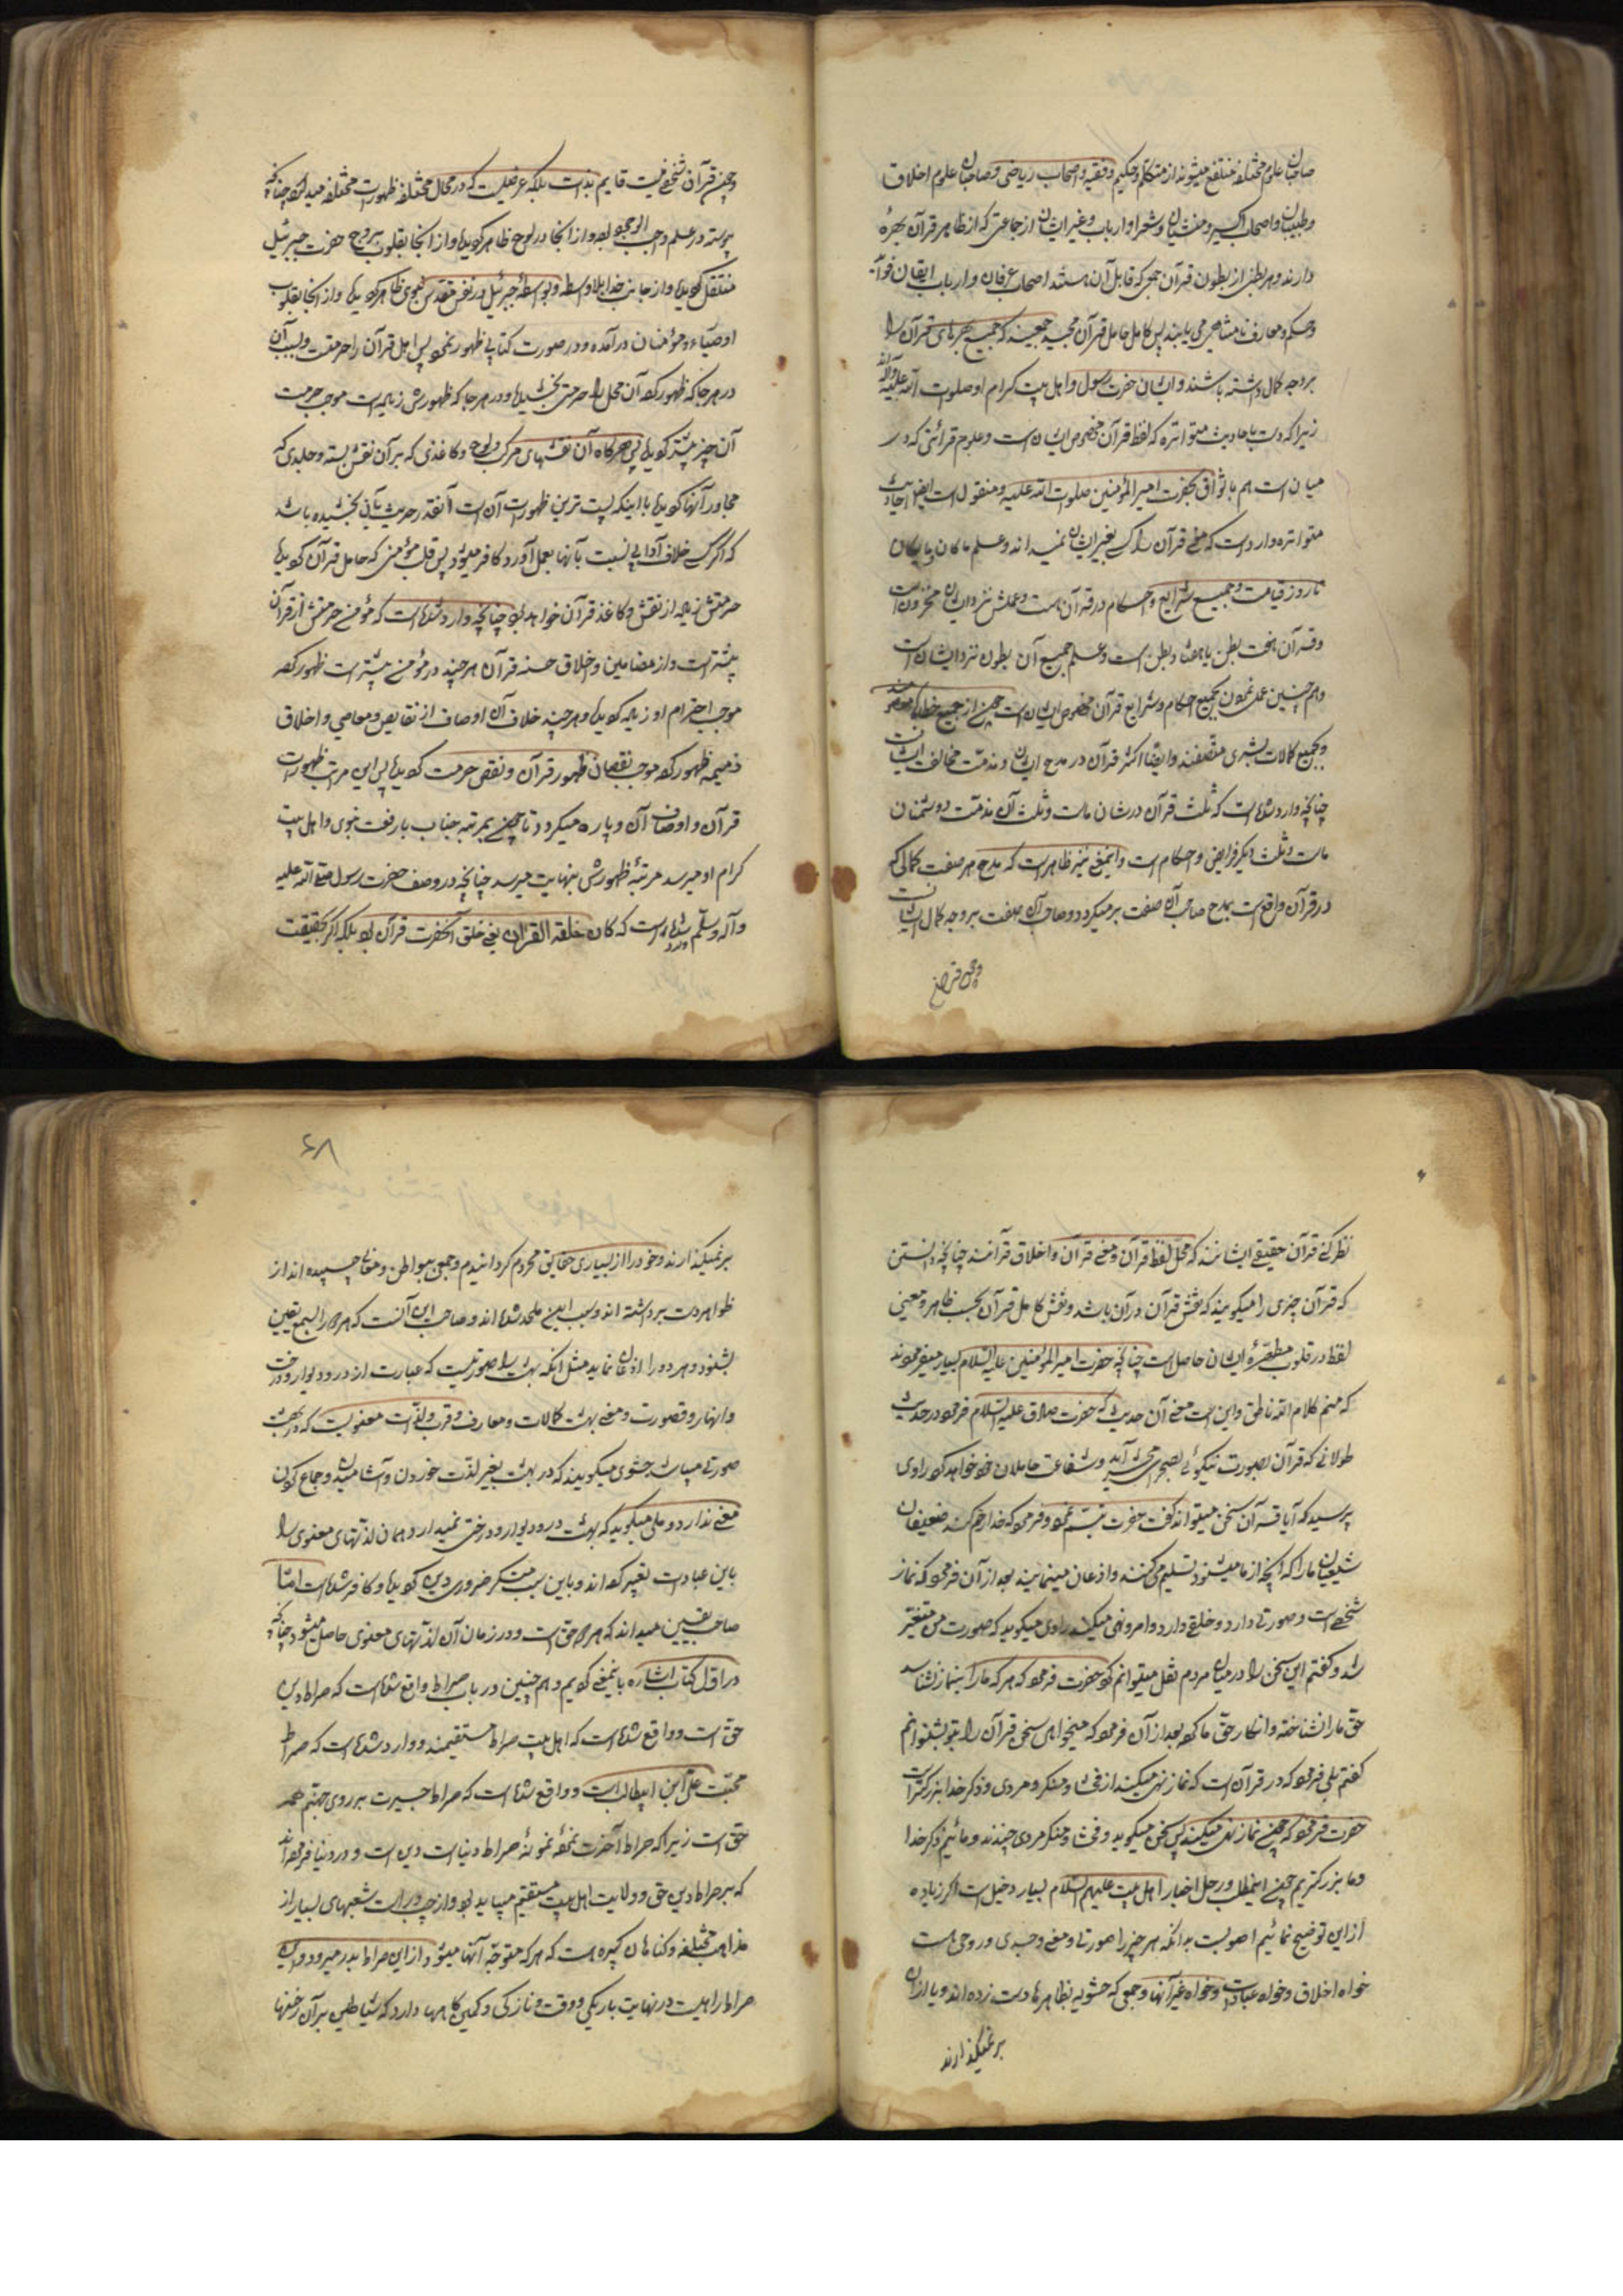 صاحبان علوم مختلفه منتفع میشوند از متکلم و حکیم و فقیه و اصحاب ریاضی و صاحبان علوم اخلاق
و طبیبان و اصحاب اکسیر و منشیان و شعرا و ارباب و غیر ایشان از جماعتی که از ظاهر قرآن بهرهٔ
دارند و هر بطنی از بطون قرآن جمعی که قابل آن هستند اصحاب عرفان و ارباب ایقان
و حکم و معارف نامتناهی می یابند پس کامل حامل قرآن مجید جمعیند که جمیع بهره های قرآن را
بر وجه کمال داشته باشند و ایشان حضرت رسول و اهل بیت کرام او صلوات الله علیه و آله اند
زیرا که دست باحادیث متواتره که لفظ قرآن مخصوص ایشان است و علوم قرائتی که در
میان است هم باتفاق بحضرت امیر المؤمنین صلوات الله علیه و منقول است ایضا احادیث
متواتره وارد است که معنی قرآن را کسی بغیر ایشان نمیداند و علم ما کان و ما یکون
تا روز قیامت و جمیع شرایع و احکام در قرآن هست و علمش نزد ایشان مخزون است
و قرآن هفت بطن یا هفتاد بطن است و علم جمیع آن بطون نزد ایشان است
و هم چنین عمل نمودن بجمیع احکام و شرایع قرآن مخصوص ایشان است چون از جمیع خطاها معصومند
و بجمیع کمالات بشری متصفند و ایضا اکثر قرآن در مدح ایشان و مذمت مخالف ایشان است
چنانچه وارد شده است که ثلث قرآن در شان ماست و ثلث آن مذمت دوشمنان
ماست و ثلث دیگر فرایض و احکام است و اینمعنی نیز ظاهر است که مدح هر صفت کمالی که
در قرآن واقع است بمدح صاحب آن صفت بر میگردد و صاحب آن صفت بر وجه کمال ایشانند
و چون قرآن
و چون قرآن شخصی نیست قایم بذات بلکه عرضیست که در محال مختلفه ظهورات مختلفه میدارد چنانچه
پیوسته در علم واجب الوجود بود و از آنجا در لوح ظاهر گردید و از آنجا بقلوب بروح حضرت جبرئیل
منتقل گردید و از جانب خدا بلا واسطه و بواسطهٔ جبرئیل در نفس مقدس نبوی ظاهر گردید و از آنجا بقلوب
اوصیاء و مؤمنان درآمده و در صورت کتابی ظهور نمود پس اصل قرآن را حرمتیست و بسبب آن
در هر جا که ظهور کرده آن محل را حرمتی بخشیده و در هر جا که ظهورش زیاده است موجب حرمت
آن چیز بیشتر گردید پس هرگاه آن نقشهای مرکب و لوح و کاغذی که بر آن نقش بسته و جلدی که
مجاور آنها گردیده با اینکه پست ترین ظهورات آن است آنقدر حرمت بآنها بخشیده باشد
که اگر کسی خلاف آدابی نسبت بآنها بعمل آورد کافر میشود پس قلب مؤمنی که حامل قرآن گردیده
حرمتش زیاده از نقش و کاغذ قرآن خواهد بود چنانچه وارد شده است که مؤمن حرمتش از قرآن
بیشتر است و از مضامین و اخلاق حسنه قرآن هر چند در مؤمن بیشتر است ظهور کرده
موجب احترام او زیاده گردیده و هر چند خلاف آن اوصاف از نقایص و معاصی و اخلاق
ذمیمه ظهور کرده موجب نقصان ظهور قرآن و نقص حرمت گردیده پس این مراتب ظهورات
قرآن و اوصاف آن و پاره میگردد تا چون بمرتبه جناب با رفعت نبوی و اهل بیت
کرام او میرسد مرتبهٔ ظهورش بنهایت میرسد چنانچه در وصف حضرت رسول صلی الله علیه
و آله و سلم وارد شده است که کان خلقه القرآن یعنی خلق آنحضرت قرآن بود بلکه اگر بحقیقت
نظر کنی قرآن حقیقی ایشانند که محل لفظ قرآن و معنی قرآن و اخلاق قرآنند چنانچه دانستی
که قرآن چیزی را میگویند که نقش قرآن در آن باشد و نقش کامل قرآن بحسب ظاهر و معنی
لفظ در قلوب مطهرهٔ ایشان حاصل است چنانچه حضرت امیر المؤمنین علیه السلام بسیار میفرمودند
که منم کلام الله ناطق و این است معنی آن حدیث که حضرت صادق علیه السلام فرمود در حدیث
طولانی که قرآن بصورت نیکوئی بصحرای محشر آید و شفاعت حاملان خود خواهد کرد راوی
پرسید که آیا قرآن سخن میتواند گفت حضرت تبسم نمود و فرمود که خدا رحم کند ضعیفان
شیعیان ما را که آنچه از ما میشنوند تسلیم می کنند و اذعان مینمایند بعد از آن فرمود که نماز
شخصی است و صورتی دارد و خلقی دارد و امر و نهی میکند راوی میگوید که صورت من متغیر
شد و گفتم این سخن را در میان مردم نقل میتوانم کرد حضرت فرمود که هر که ما را بنماز نشناسد
حق ما را نشناخته و انکار حق ما کرد بعد از آن فرمود که میخواهی سخن قرآن را بتو بشنوانم
گفتم بلی فرمود که در قرآن است که نماز نهی میکند از فحشا و منکر و مردی و ذکر خدا بزرگتر است
حضرت فرمود که چون نماز نهی میکند پس سخن میگوید و فحشا و منکر مردی چندند و مائیم ذکر خدا
و ما بزرگتریم چون اینمطلب در حل اخبار اهل بیت علیهم السلام بسیار دخیل است اگر زیاده
از این توضیح نمائیم اصوبست بدانکه هر چیز را صورتی و معنی و جسدی و روحی است
خواه اخلاق و خواه عبادات و خواه غیر آنها و جمعی که حشویه بظاهرها دست زده اند و پا از آن
بر نمیگذارند
۶۸
بر نمیگذارند و خود را از بسیاری حقایق محروم گردانیدم و جمعی ببواطن و معانی چسپیده اند از
ظواهر دست برداشته اند و بسبب این ملحد شده اند و صاحب این آنست که هر دو را بسمع یقین
بشنود و هر دو را اذعان نماید مثل آنکه بهشت را صورتیست که عبارت از در و دیوار و درخت
و انهار و قصورست و معنی بهشت کمالات و معارف و قرب و لذات معنویست که در بهشت
صورتی میباشد حشوی میگویند که در بهشت بغیر لذت خوردن و آشامیدن و جماع کردن
معنی ندارد و ملحد میگوید که بهشت در و دیوار و درختی نمیدارد و همان لذتهای معنوی را
باین عبادت تعبیر کرده اند و باین سبب منکر ضروری دین گردیده و کافر شده است اما
صاحب یقین میداند که هر دو حق است و در زمان آن لذتهای معنوی حاصل میشود چنانچه
در اول کتاب اشاره باینمعنی کردیم و هم چنین در باب صراط واقع شده است که صراط دین
حق است و واقع شده است که اهل بیت صراط مستقیمند و وارد شده است که صراط
محبت علی ابن ابیطالب است و واقع شده است که صراط جسریست بر روی جهنم همه
حق است زیرا که صراط آخرت نمونهٔ صراط دنیاست دین است و در دنیا فرموده اند
که بر صراط دین حق و ولایت اهل بیت مستقیم میباید بود و از چپ و راست شعبهای بسیار از
مذاهب مختلفه و گناهان کبیره است که هر که متوجه آنها میشود از این صراط بدر میرود و این
صراط راهیست در نهایت باریکی و دقت و نازکی و کمین گاهها دارد که شیاطین بر آن رخنها